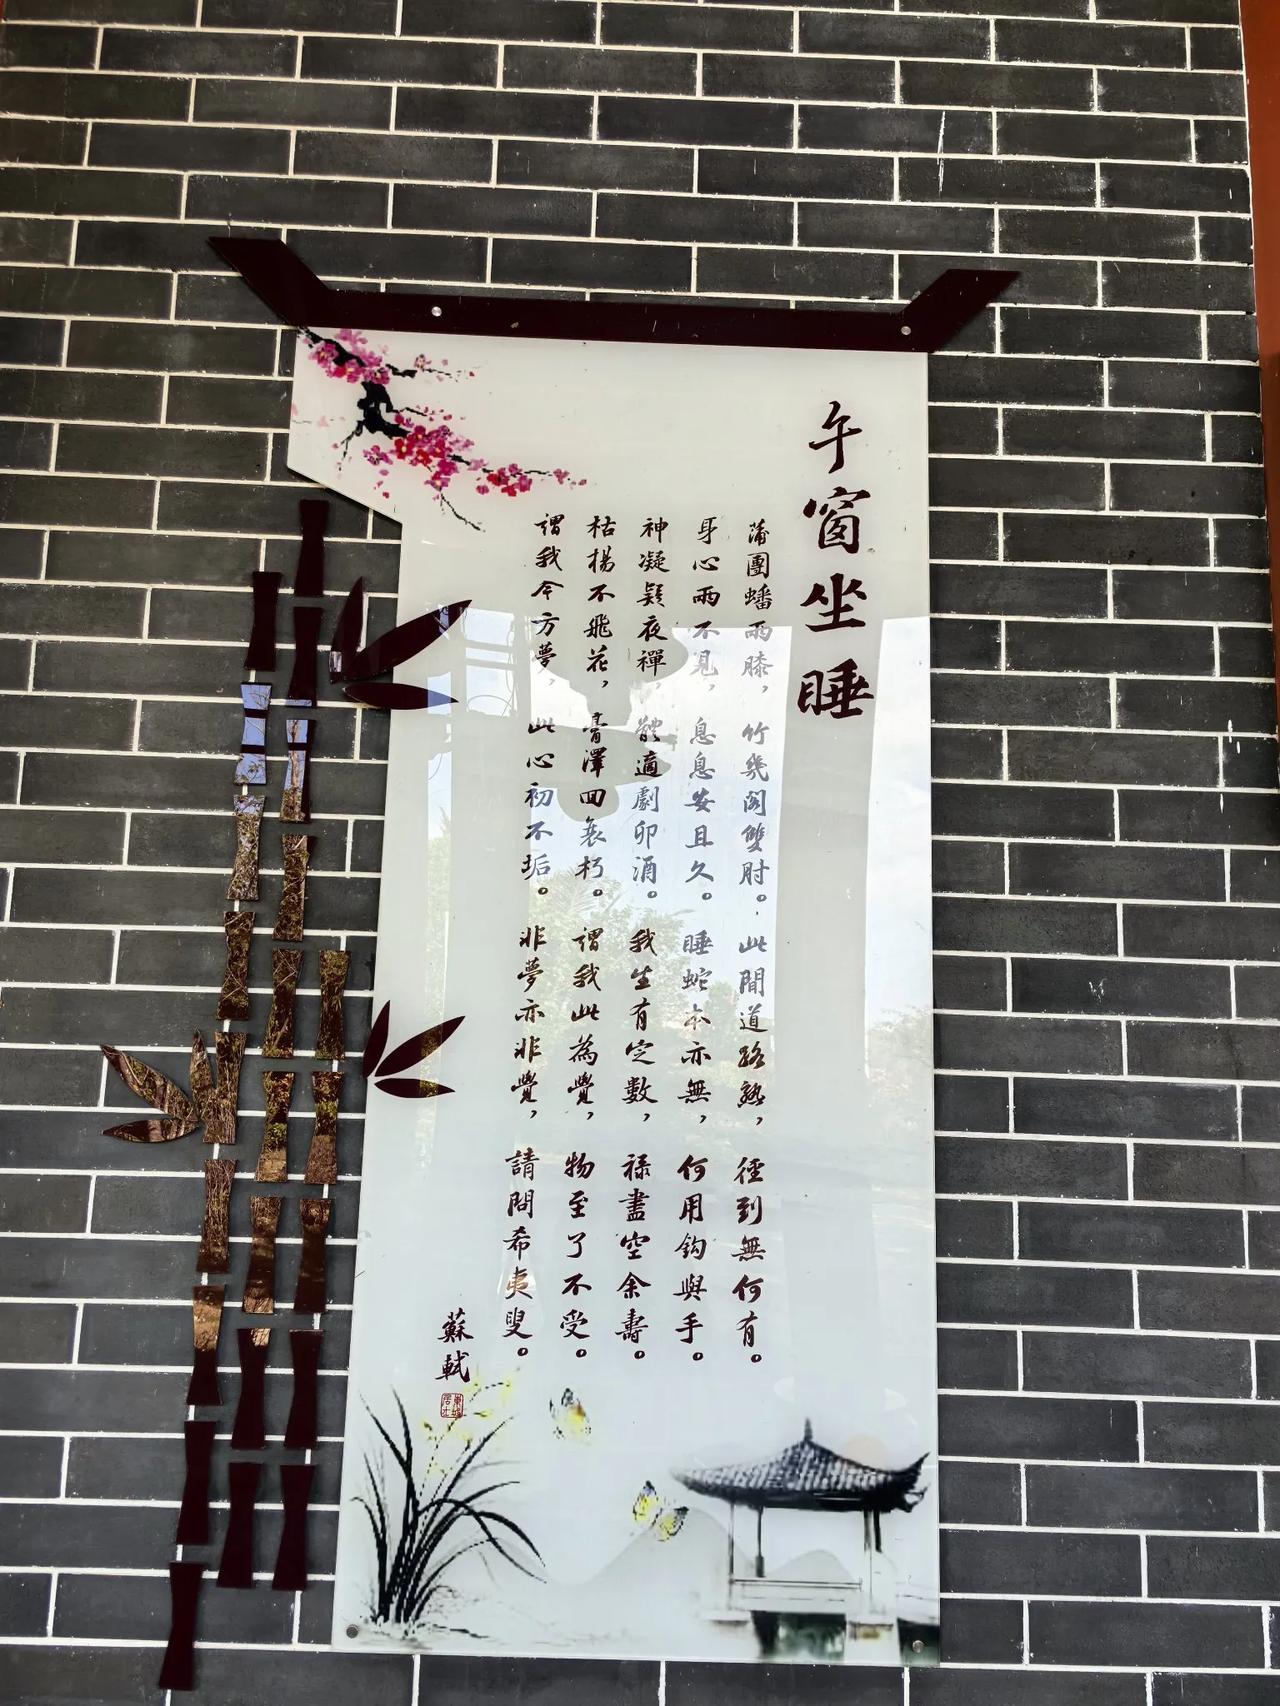 午窗坐睡
蒲團蟠兩膝，竹幾閣雙肘。此間道路熟，徑到無何有。
身心兩不見，息息安且久。睡蛇本亦無，何用鈎與手。
神凝疑夜禪，體適劇卯酒。我生有定數，祿盡空余壽。
枯楊不飛花，膏澤回衰朽。謂我此為覺，物至了不受。
謂我今方夢，此心初不垢。非夢亦非覺，請問希夷叟。
蘇軾